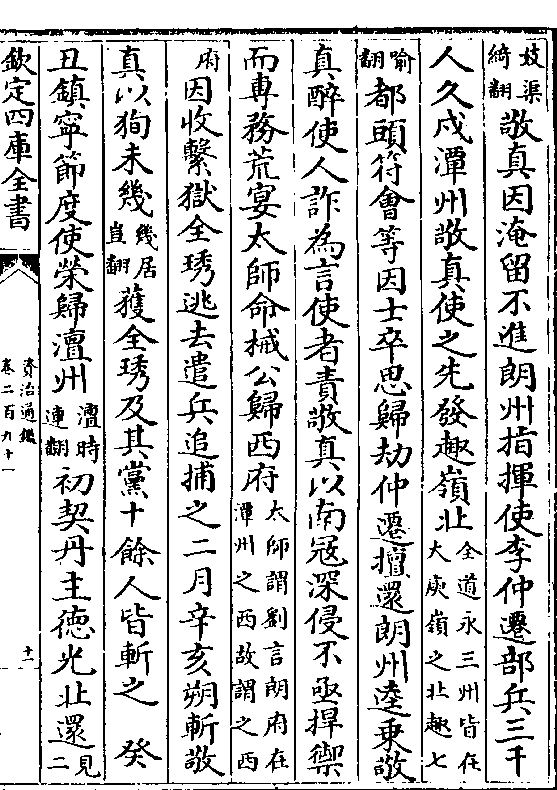 妓渠
綺翻
敬真因淹留不進朗州指揮使李仲遷部兵三千
人久戍潭州敬真使之先發趣嶺北
全道永三州皆在
大庾嶺之北趣七
喻
翻
都頭符會等因士卒思歸劫仲遷擅還朗州逵乗敬
真醉使人詐為言使者責敬真以南冦深侵不亟捍禦
而專務荒宴太師命械公歸西府
太師謂劉言朗府在
潭州之西故謂之西
府
因收繫獄全琇逃去遣兵追捕之二月辛亥朔斬敬
真以狥未幾
幾居
豈翻
獲全琇及其黨十餘人皆斬之　癸
丑鎮寜節度使榮歸澶州
澶時
連翻
初契丹主徳光北還
見
二
欽定四庫全書
資治通鑑
卷二百九十一
十一